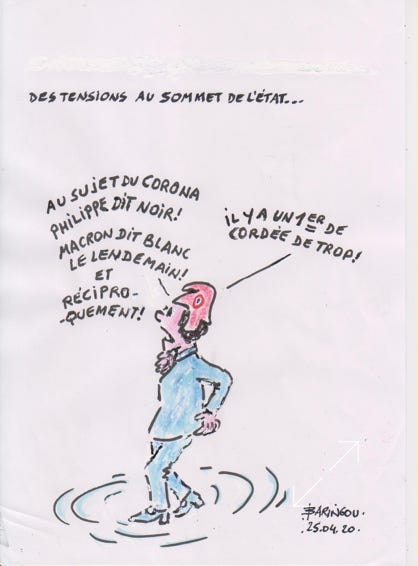 DES TENSIONS AU SOMMET DE L'ÉTAT...
AU SUJET DU CORONA
PHILIPPE DIT NOIR!
MACRON DIT BLANC
LE LENDEMAIN!
ET
RÉCIPRO-
-QUEMENT!
IL Y A UN 1ER DE
CORDÉE DE TROP!
BARINGOU.
.25.04.20.